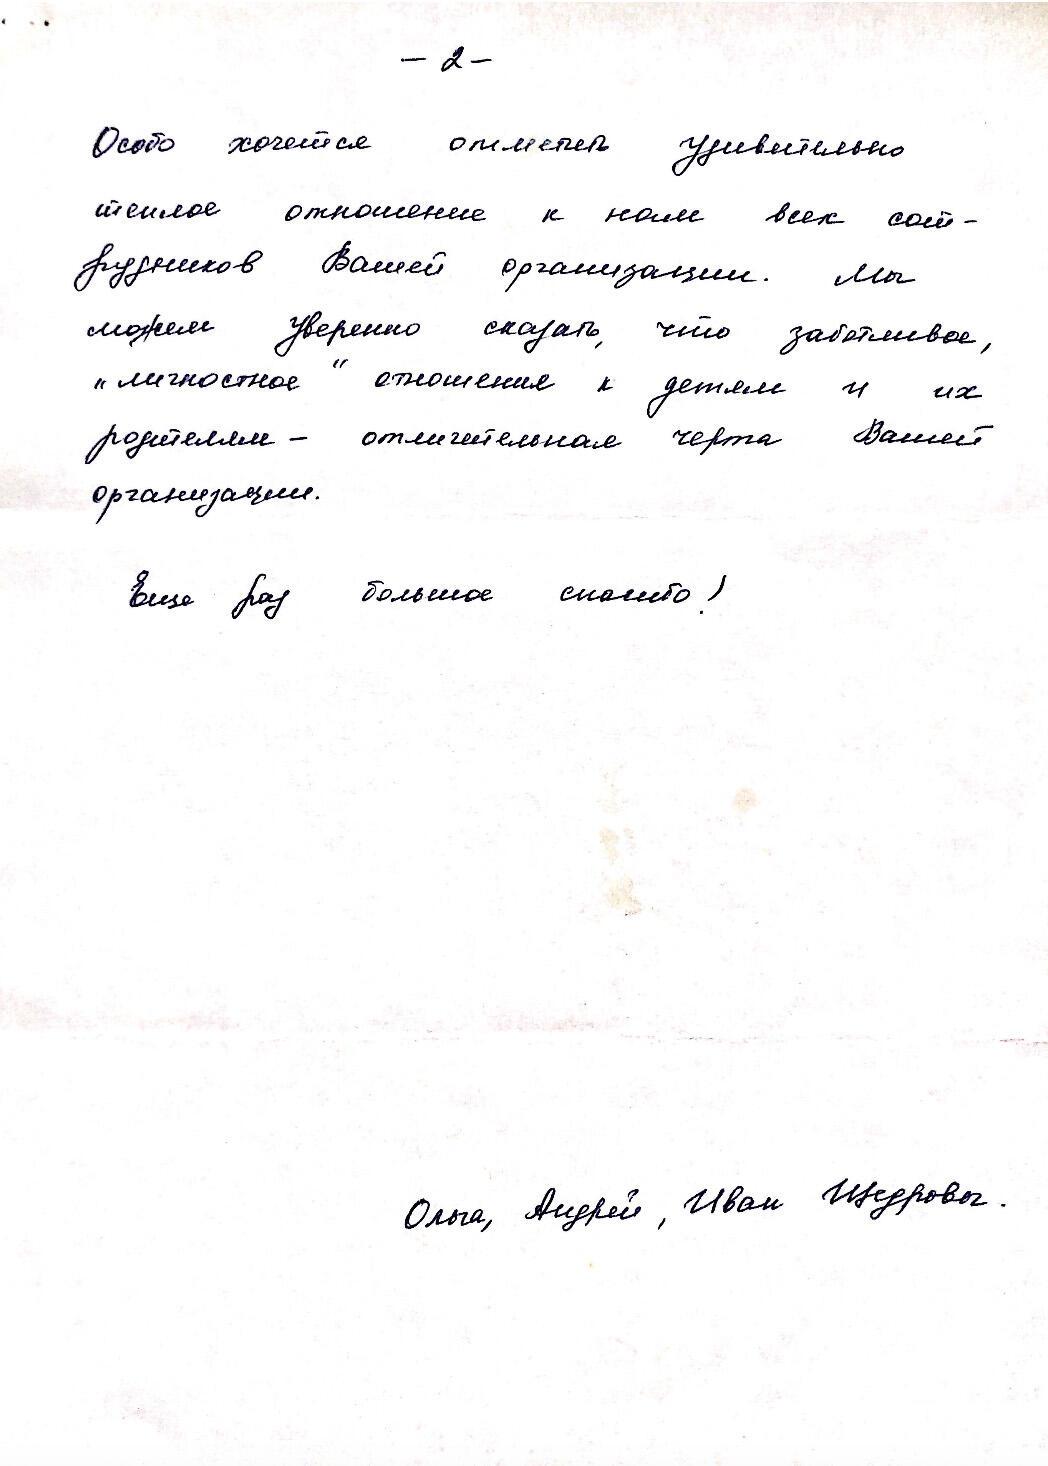 - 2 -
Особо хочется отметить удивительно
теплое отношение к нам всех сот-
рудников Вашей организации. Мы
можем уверенно сказать, что заботливое,
„личностное" отношения к детям и их
родителям – отличительная черта Вашей
организации.
Еще раз большое спасибо!
Ольга, Андрей, Иван Щедровы.